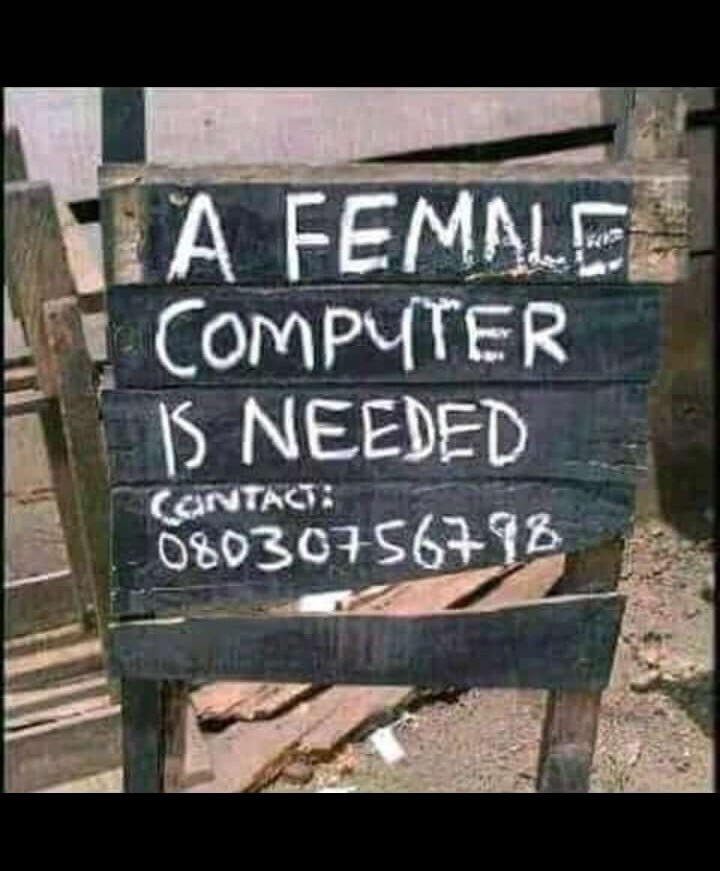 A FEMALE
COMPUTER
IS NEEDED
CONTACT:
08030756798